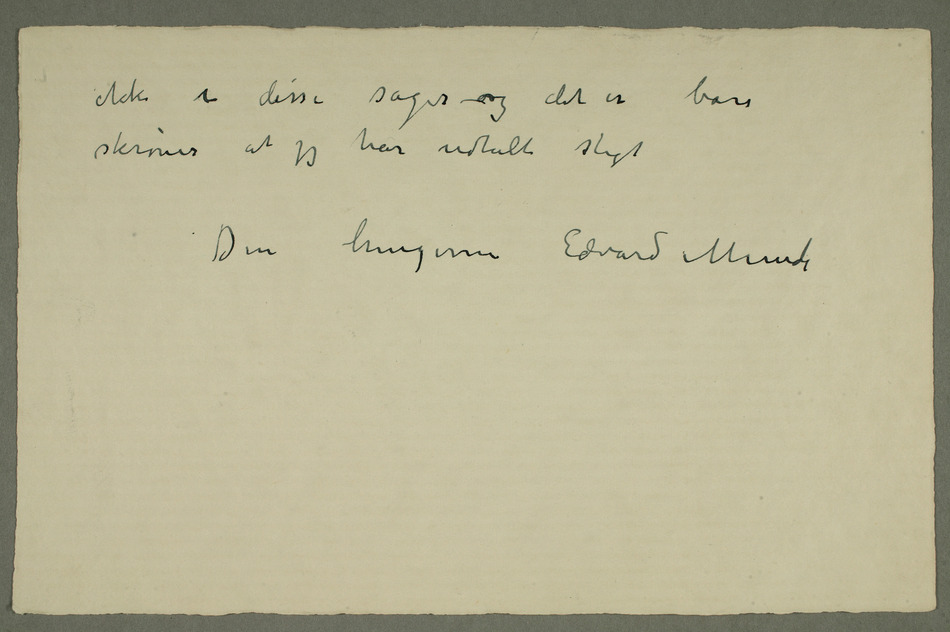 ikke i disse sager og det er bare
skrøner at jeg har udtalt sligt
Din hengivne Edvard Munch